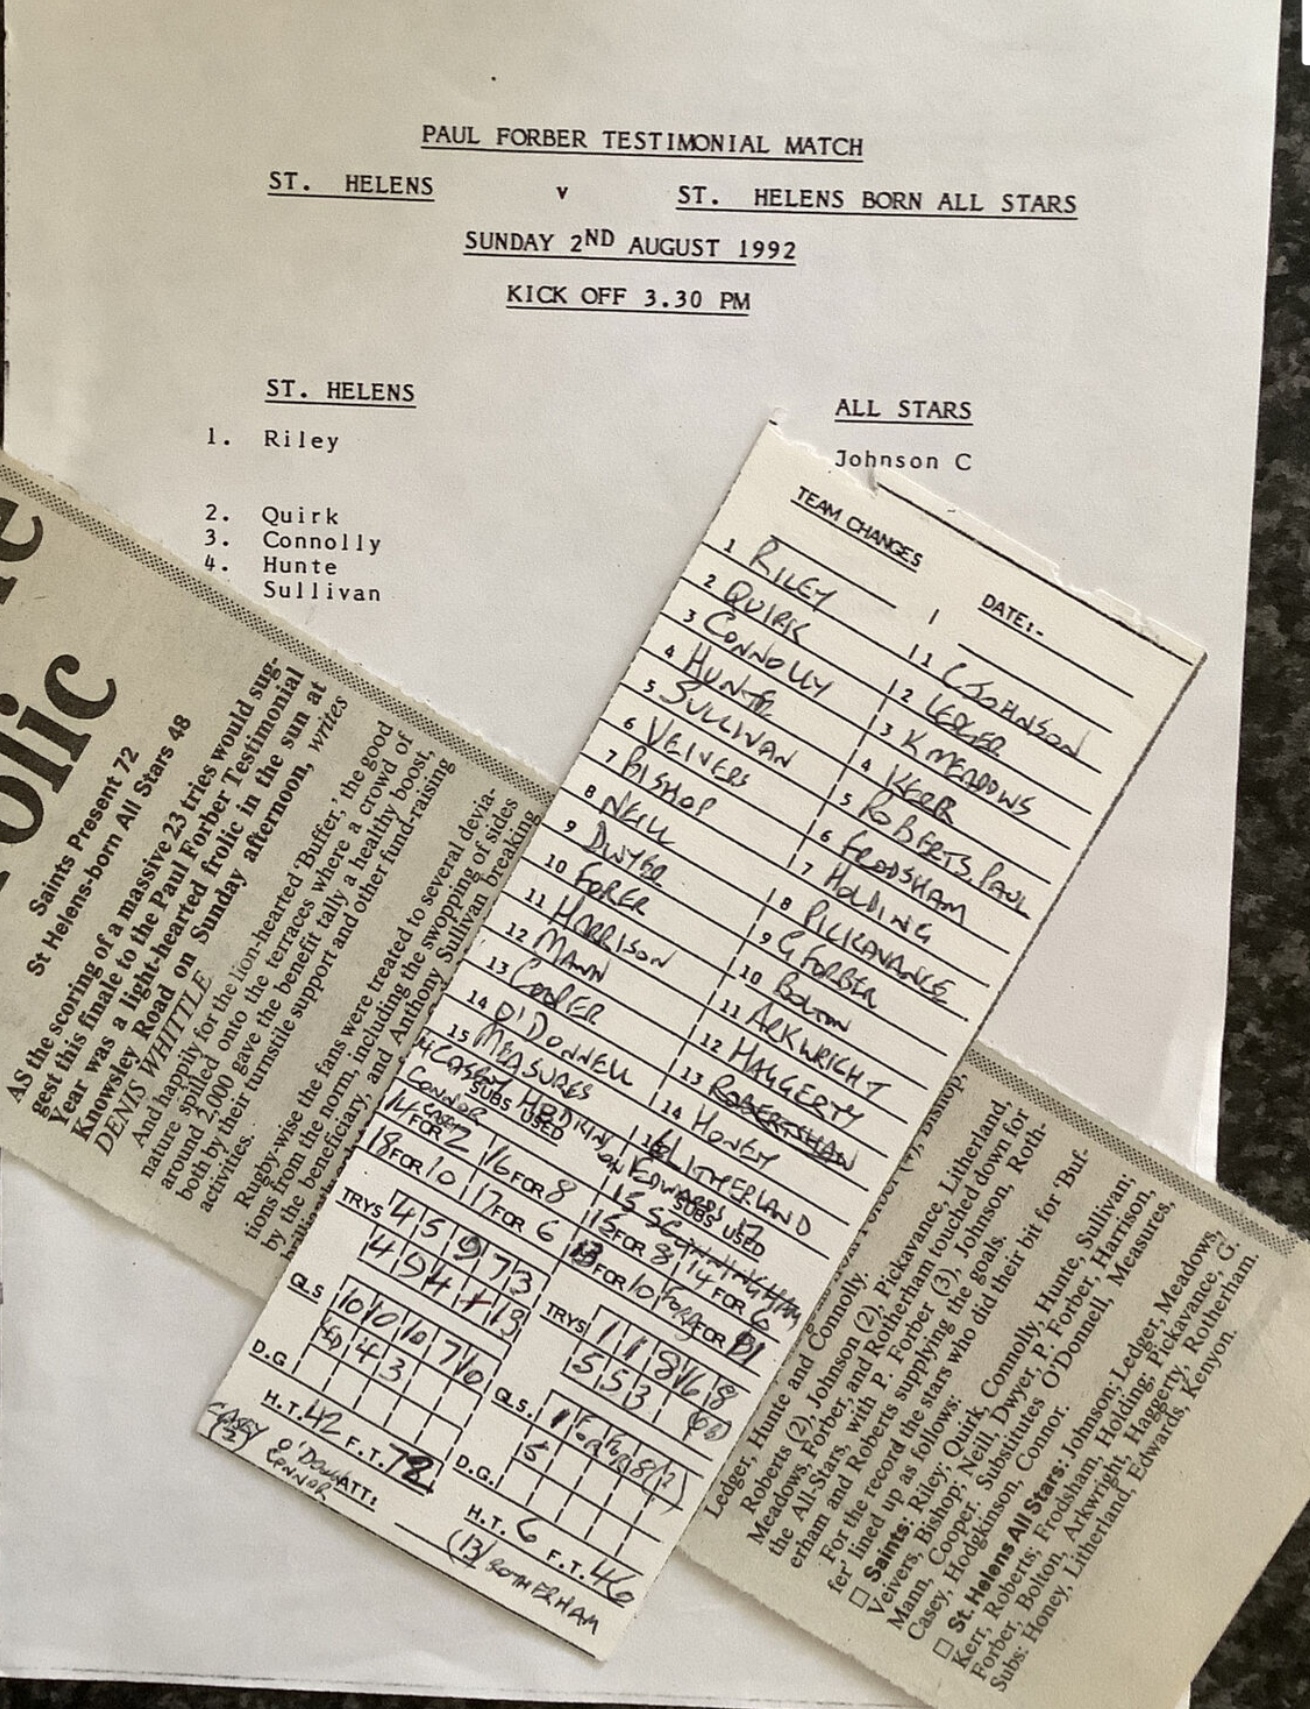 PAUL FORBER TESTIMONIAL MATCH
ST. HELENS v ST. HELENS BORN ALL STARS
SUNDAY 2ND AUGUST 1992
KICK OFF 3.30 PM
ST. HELENS
1. Riley
2. Quirk
3. Connolly
4. Hunte
Sullivan
ALL STARS
Johnson C
olic
Saints Present 72
St Helens-born All Stars 48
AS the scoring of a massive 23 tries would sug-
gest this finale to the Paul Forber Testimonial
Year was a light-hearted frolic in the sun at
Knowsley Road on Sunday afternoon, writes
DENIS WHITTLE.
And happily for the lion-hearted 'Buffer,' the good
nature spilled onto the terraces where a crowd of
around 2,000 gave the benefit tally a healthy boost,
both by their turnstile support and other fund-raising
activities.
Rugby-wise the fans were treated to several devia-
tions from the norm, including the swopping of sides
by the beneficiary, and Anthony Sullivan breaking
TEAM CHANGES
DATE:-
1 RILEY
2 QUIRK
3 CONNOLLY
4 HUNTE
5 SULLIVAN
6 VEIVERS
7 BISHOP
8 NEILL
9 DWYER
10 FORBER
11 HARRISON
12 MANN
13 COOPER
14 O'DONNELL
15 MEASURES
CASEY HODKIN
CONNOR
SUBS USED
14 FOR 2 16 FOR 8
18 FOR 10 17 FOR 6
TRYS 4 5 9 7 3
GLS 10 10 10 7 10
4 3
D.G
H.T. 42 F.T. 72
CASEY (2)
O'DONN ATT:
CONNOR
1 C JOHNSON
2 LEDGER
3 K MEADOWS
4 KERR
5 ROBERTS PAUL
6 FRODSHAM
7 HOLDING
8 PICKAVANCE
9 G FORBER
10 BOLTON
11 ARKWRIGHT
12 HAGGERTY
13
14 HONEY
16 LITHERLAND
EDWARDS 17
15
SUBS USED
15 FOR 8 14 FOR 6
13 FOR 10
TRYS 1 1 8 16 8
5 5 3
GLS.
5
D.G.
H.T. 6 F.T. 46
(13) ROTHERHAM
Bishop,
Ledger, Hunte and Connolly.
Roberts (2), Johnson (2), Pickavance, Litherland,
Meadows, Forber, and Rotherham touched down for
the All-Stars, with P. Forber (3), Johnson, Roth-
erham and Roberts supplying the goals.
For the record the stars who did their bit for 'Buf-
fer' lined up as follows:
□ Saints: Riley; Quirk, Connolly, Hunte, Sullivan;
Veivers, Bishop; Neill, Dwyer, P. Forber, Harrison,
Mann, Cooper. Substitutes O'Donnell, Measures,
Casey, Hodgkinson, Connor.
□ St. Helens All Stars: Johnson; Ledger, Meadows,
Kerr, Roberts; Frodsham, Holding; Pickavance, G.
Forber, Bolton, Arkwright, Haggerty, Rotherham.
Subs: Honey, Litherland, Edwards, Kenyon.